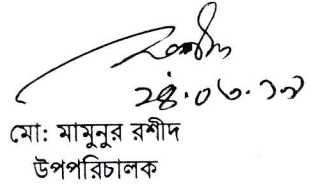 ২৪.০৬.১৯
মো: মামুনুর রশীদ
উপপরিচালক